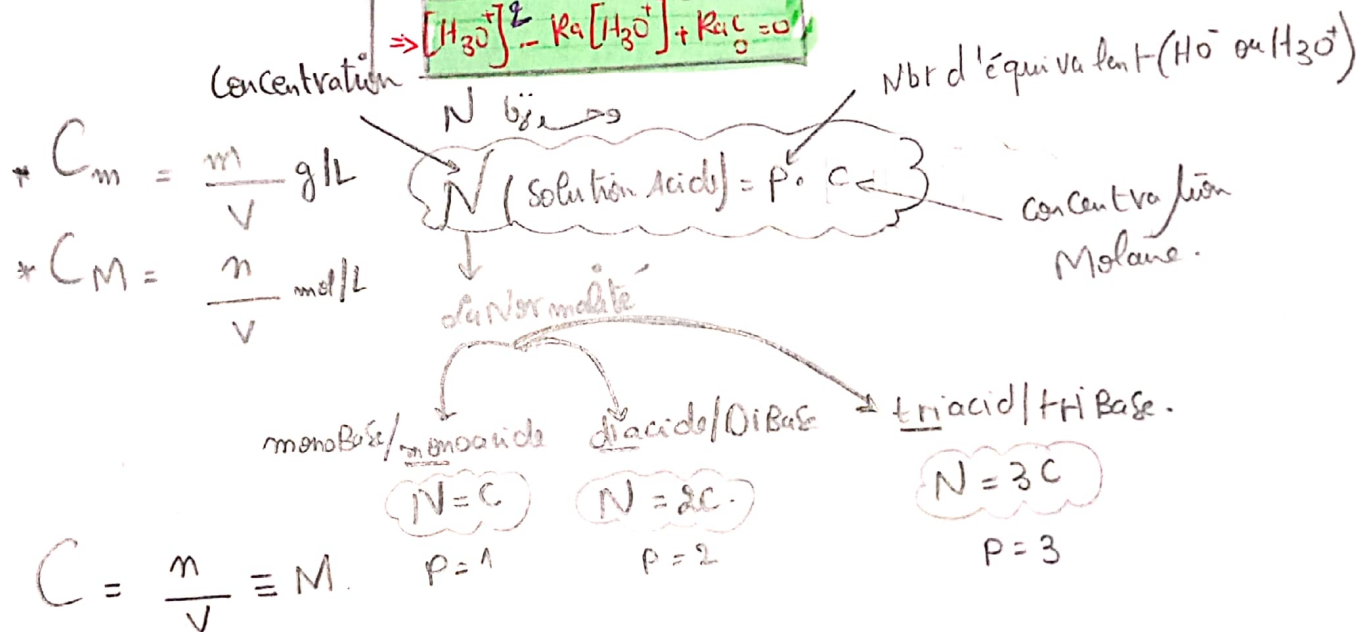 ⇒ [H₃O⁺]² - Ka[H₃O⁺] + KaC₀ = 0
Concentration
Nbr d'équivalent (HO⁻ ou H₃O⁺)
N
* Cm = m/V g/L
N (Solution Acide) = P. C
Concentration
Molaire.
* CM = n/V mol/L
la Normalité
monoBase/monoacide
diacide/DiBase
triacid/triBase.
N = C
N = 2C.
N = 3C
P = 1
P = 2
P = 3
C = n/V ≡ M.